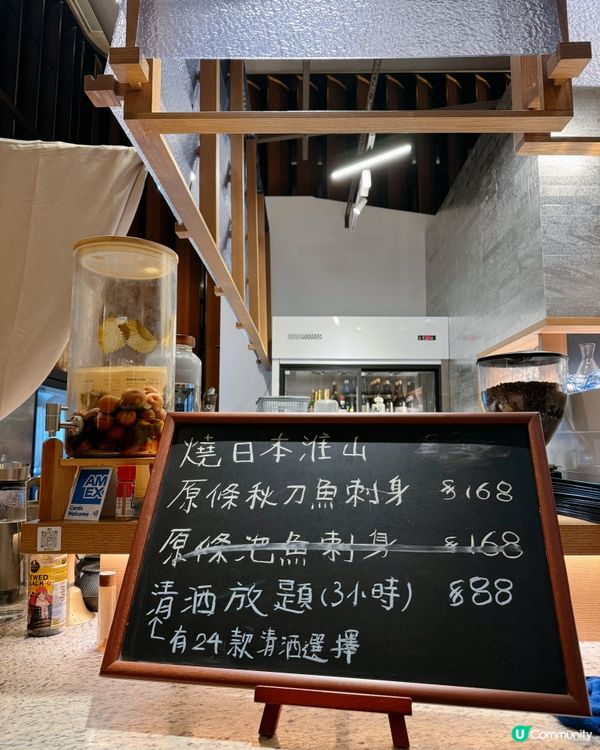 燒日本淮山
原條秋刀魚刺身 $168
原條池魚刺身 $168
清酒放題(3小時) $88
有24款清酒選擇
AM
EX
Cards
Welcome
U Community